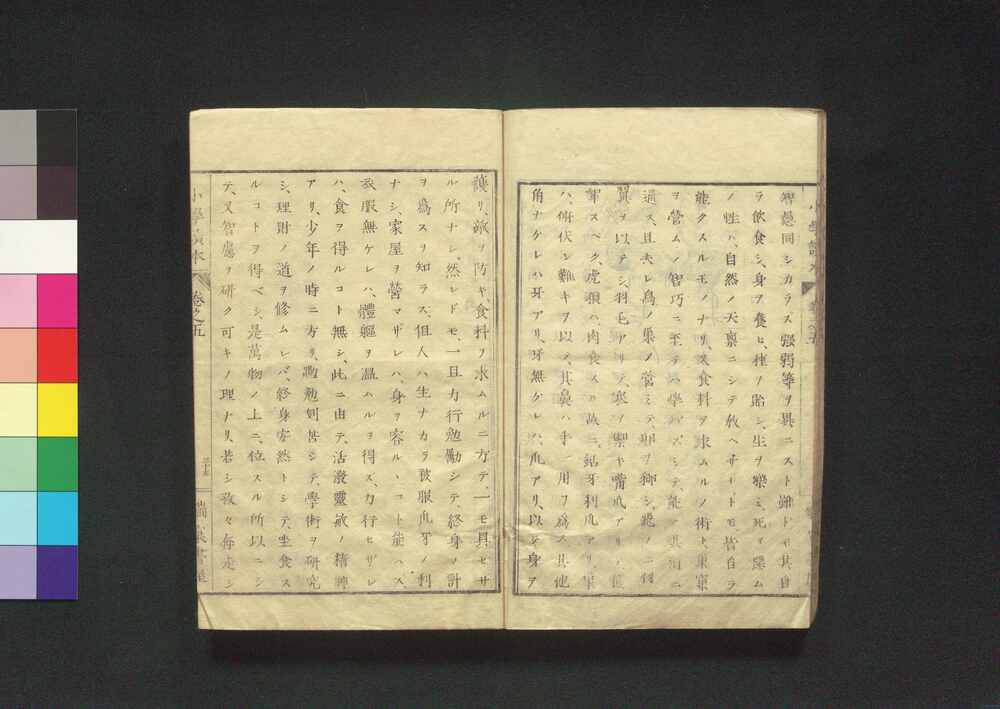 智愚同シカラス強弱等ヲ異ニスト雖ドモ其自
ラ飲食シ、身ヲ養ヒ、種ヲ貽シ、生ヲ樂ミ、死ヲ惡ム
ノ性ハ、自然ノ天稟ニシテ教ヘザレドモ皆自ラ
能クスルモノナリ、又食料ヲ求ムルノ術ト巣窠
ヲ營ムノ智巧ニ至テハ學バズシテ、能ク其用ニ
適ス、且夫レ鳥ノ巣ノ營ミテ、卵ヲ
翼ヲ以テシ羽毛アリテ、寒ヲ禦キ嘴爪アリ
スベク、虎狼ハ肉食スルノ故ニ、鋸牙利爪アリ、
ハ、俯伏シ難キヲ以テ、其鼻ハ手ノ用ヲ爲ス其他
角ナケレハ牙アリ、牙無ケレハ、爪アリ、以テ身ヲ
護リ、敵ヲ防キ、食料ヲ求ムルニ方テ、一モ具セサ
ル所ナシ、然レドモ、一旦力行勉勵シテ終身ノ計
ヲ爲スヲ知ラス、但人ハ生ナカラ被服爪牙ノ利
ナシ、家屋ヲ營マザレハ、身ヲ容ルヽコト能ハス、
衣服無ケレハ、體軀ヲ温ハルヲ得ズ、力行セザレ
ハ、食ヲ得ルコト無シ、此ニ由テ、活潑靈敏ノ精神
アリ、少年ノ時ニ方リ、勤勉刻苦シテ、學術ヲ研究
シ、理財ノ道ヲ修ムレバ、終身安然トシテ、坐食ス
ルコトヲ得ベシ、是萬物ノ上ニ、位スル所以ニシ
テ、又智慮ヲ研ク可キノ理ナリ、若シ孜々奔走シ
小學讀本
卷之五
三十五